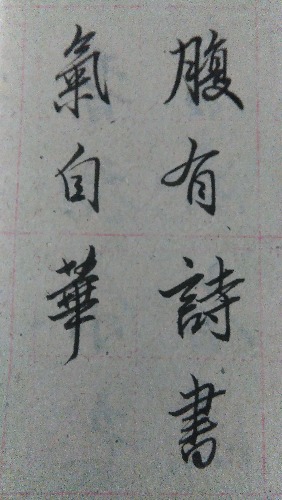 腹有詩書
氣自華